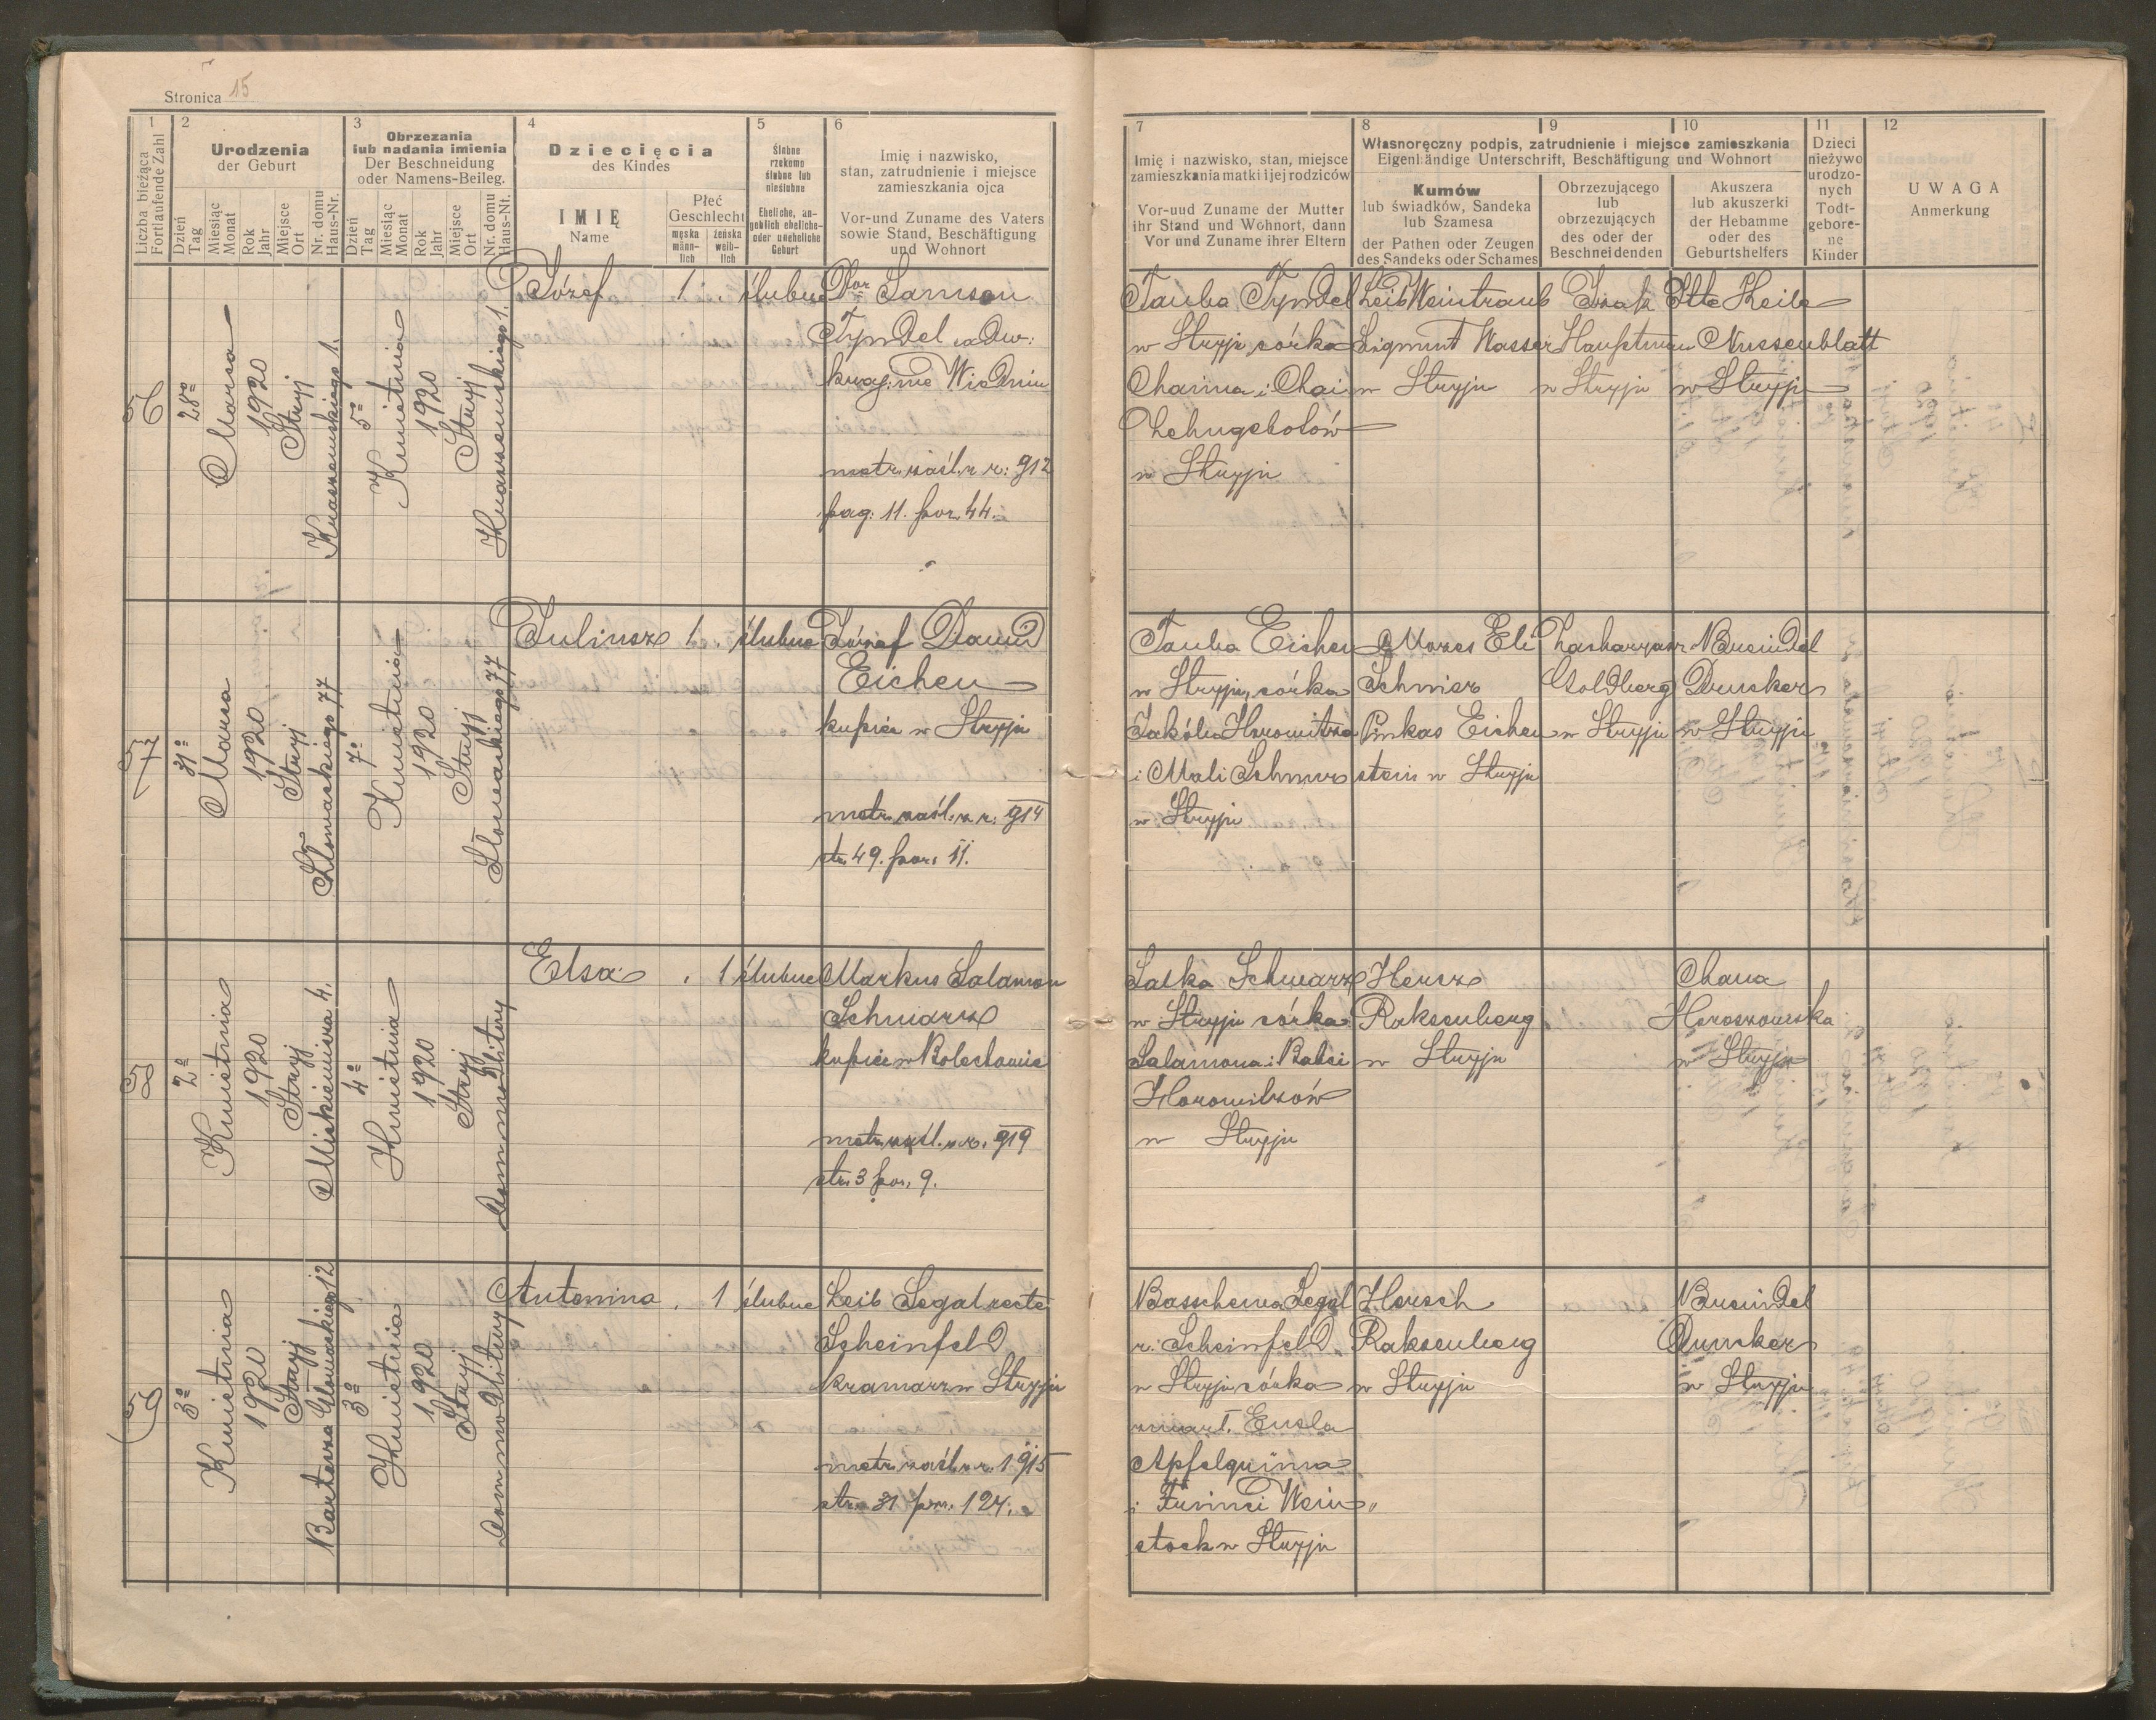 Stronica 15
1
Liczba bieżąca
Fortlaufende Zahl
2
Urodzenia
der Geburt
Dzień
Tag
Miesiąc
Monat
Rok
Jahr
Miejsce
Ort
Nr. domu
Haus-Nr.
3
Obrzezania
lub nadania imienia
Der Beschneidung
oder Namens-Beileg.
Dzień
Tag
Miesiąc
Monat
Rok
Jahr
Miejsce
Ort
Nr. domu
Haus-Nt.
4
Dziecięcia
des Kindes
IMIĘ
Name
Płeć
Geschlecht
męska
männ-
lich
żeńska
weib-
lich
5
Ślubne
rzekomo
ślubne lub
nieślubne
Eheliche, an-
geblich eheliche-
oder uneheliche
Geburt
6
Imię i nazwisko,
stan, zatrudnienie i miejsce
zamieszkania ojca
Vor-und Zuname des Vaters
sowie Stand, Beschäftigung
und Wohnort
7
Imię i nazwisko, stan, miejsce
zamieszkania matki i jej rodziców
Vor-uud Zuname der Mutter
ihr Stand und Wohnort, dann
Vor und Zuname ihrer Eltern
8 9 10
Własnoręczny podpis, zatrudnienie i miejsce zamieszkania
Eigenhändige Unterschrift, Beschäftigung und Wohnort
Kumów
lub świadków, Sandeka
lub Szamesa
der Pathen oder Zeugen
des Sandeks oder Schames
Obrzezującego
lub
obrzezujących
des oder der
Beschneidenden
Akuszera
lub akuszerki
der Hebamme
oder des
Geburtshelfers
11
Dzieci
nieżywo
urodzo-
nych
Todt-
gebore-
ne
Kinder
12
UWAGA
Anmerkung
56
28º
Marca
1920
Stryj
Kraszewskiego 1.
5º
Kwietnia
1920
Stryj
Kraszewskiego 1.
Józef
1 .
ślubne
Dor Samson
Tyndel
kraj. we Wiedniu
metr. zaśl. z r: 912
pag: 11. poz. 44.
Tauba Tyndel
w Stryju, córka
Chaima i Chai
w Stryju
Leib Weintraub
Zigmunt Wasser
w Stryju
Izak
Hauptman
w Stryju
Itte Heile
Nussenblatt
w Stryju
57
31º
Marca
1920
Stryj
Słowackiego 77
7º
Kwietnia
1920
Stryj
Słowackiego 77
Juliusz
1 .
ślubne
Józef Dawid
Eichen
kupiec w Stryju
metr. zaśl. z r: 914
str. 49. poz. 11.
Tauba Eichen
w Stryju, córka
Jakóba Horowitza
i Mali Schnurz
w Stryju
Mozes Eli
Schmier
Pinkas Eichen
stein w Stryju
Zacharyasz
Goldberg
w Stryju
Breindel
Drucker
w Stryju
58
2º
Kwietnia
1920
Stryj
Mickiewicza 4.
4º
Kwietnia
1920
Stryj
dom modlitwy
Elsa
. 1
ślubne
Markus Salamon
Schwarz
kupiec w Bolechowie
metr. zaśl. z r. 919
str. 3 poz. 9.
Salka Schwarz
w Stryju córka
Salamona i Babci
Horowitzów
w Stryju
Hersz
Raksenberg
w Stryju
Chana
Horoszowska
w Stryju
59
3º
Kwietnia
1920
Stryj
Bartosza Głowackiego 12
3º
Kwietnia
1920
Stryj
dom modlitwy
Antonina
. 1
ślubne
Leib Segal recte
Scheinfeld
kramarz w Stryju
metr. zaśl. z r. 1915
str. 31 poz. 124.
Basschewa Segal
r: Scheinfeld
w Stryju, córka
zmarł. Ensla
Apfelgrüna
i Fusinei Wein„
stock w Stryju
Hersch
Raksenberg
w Stryju
Breindel
Drucker
w Stryju